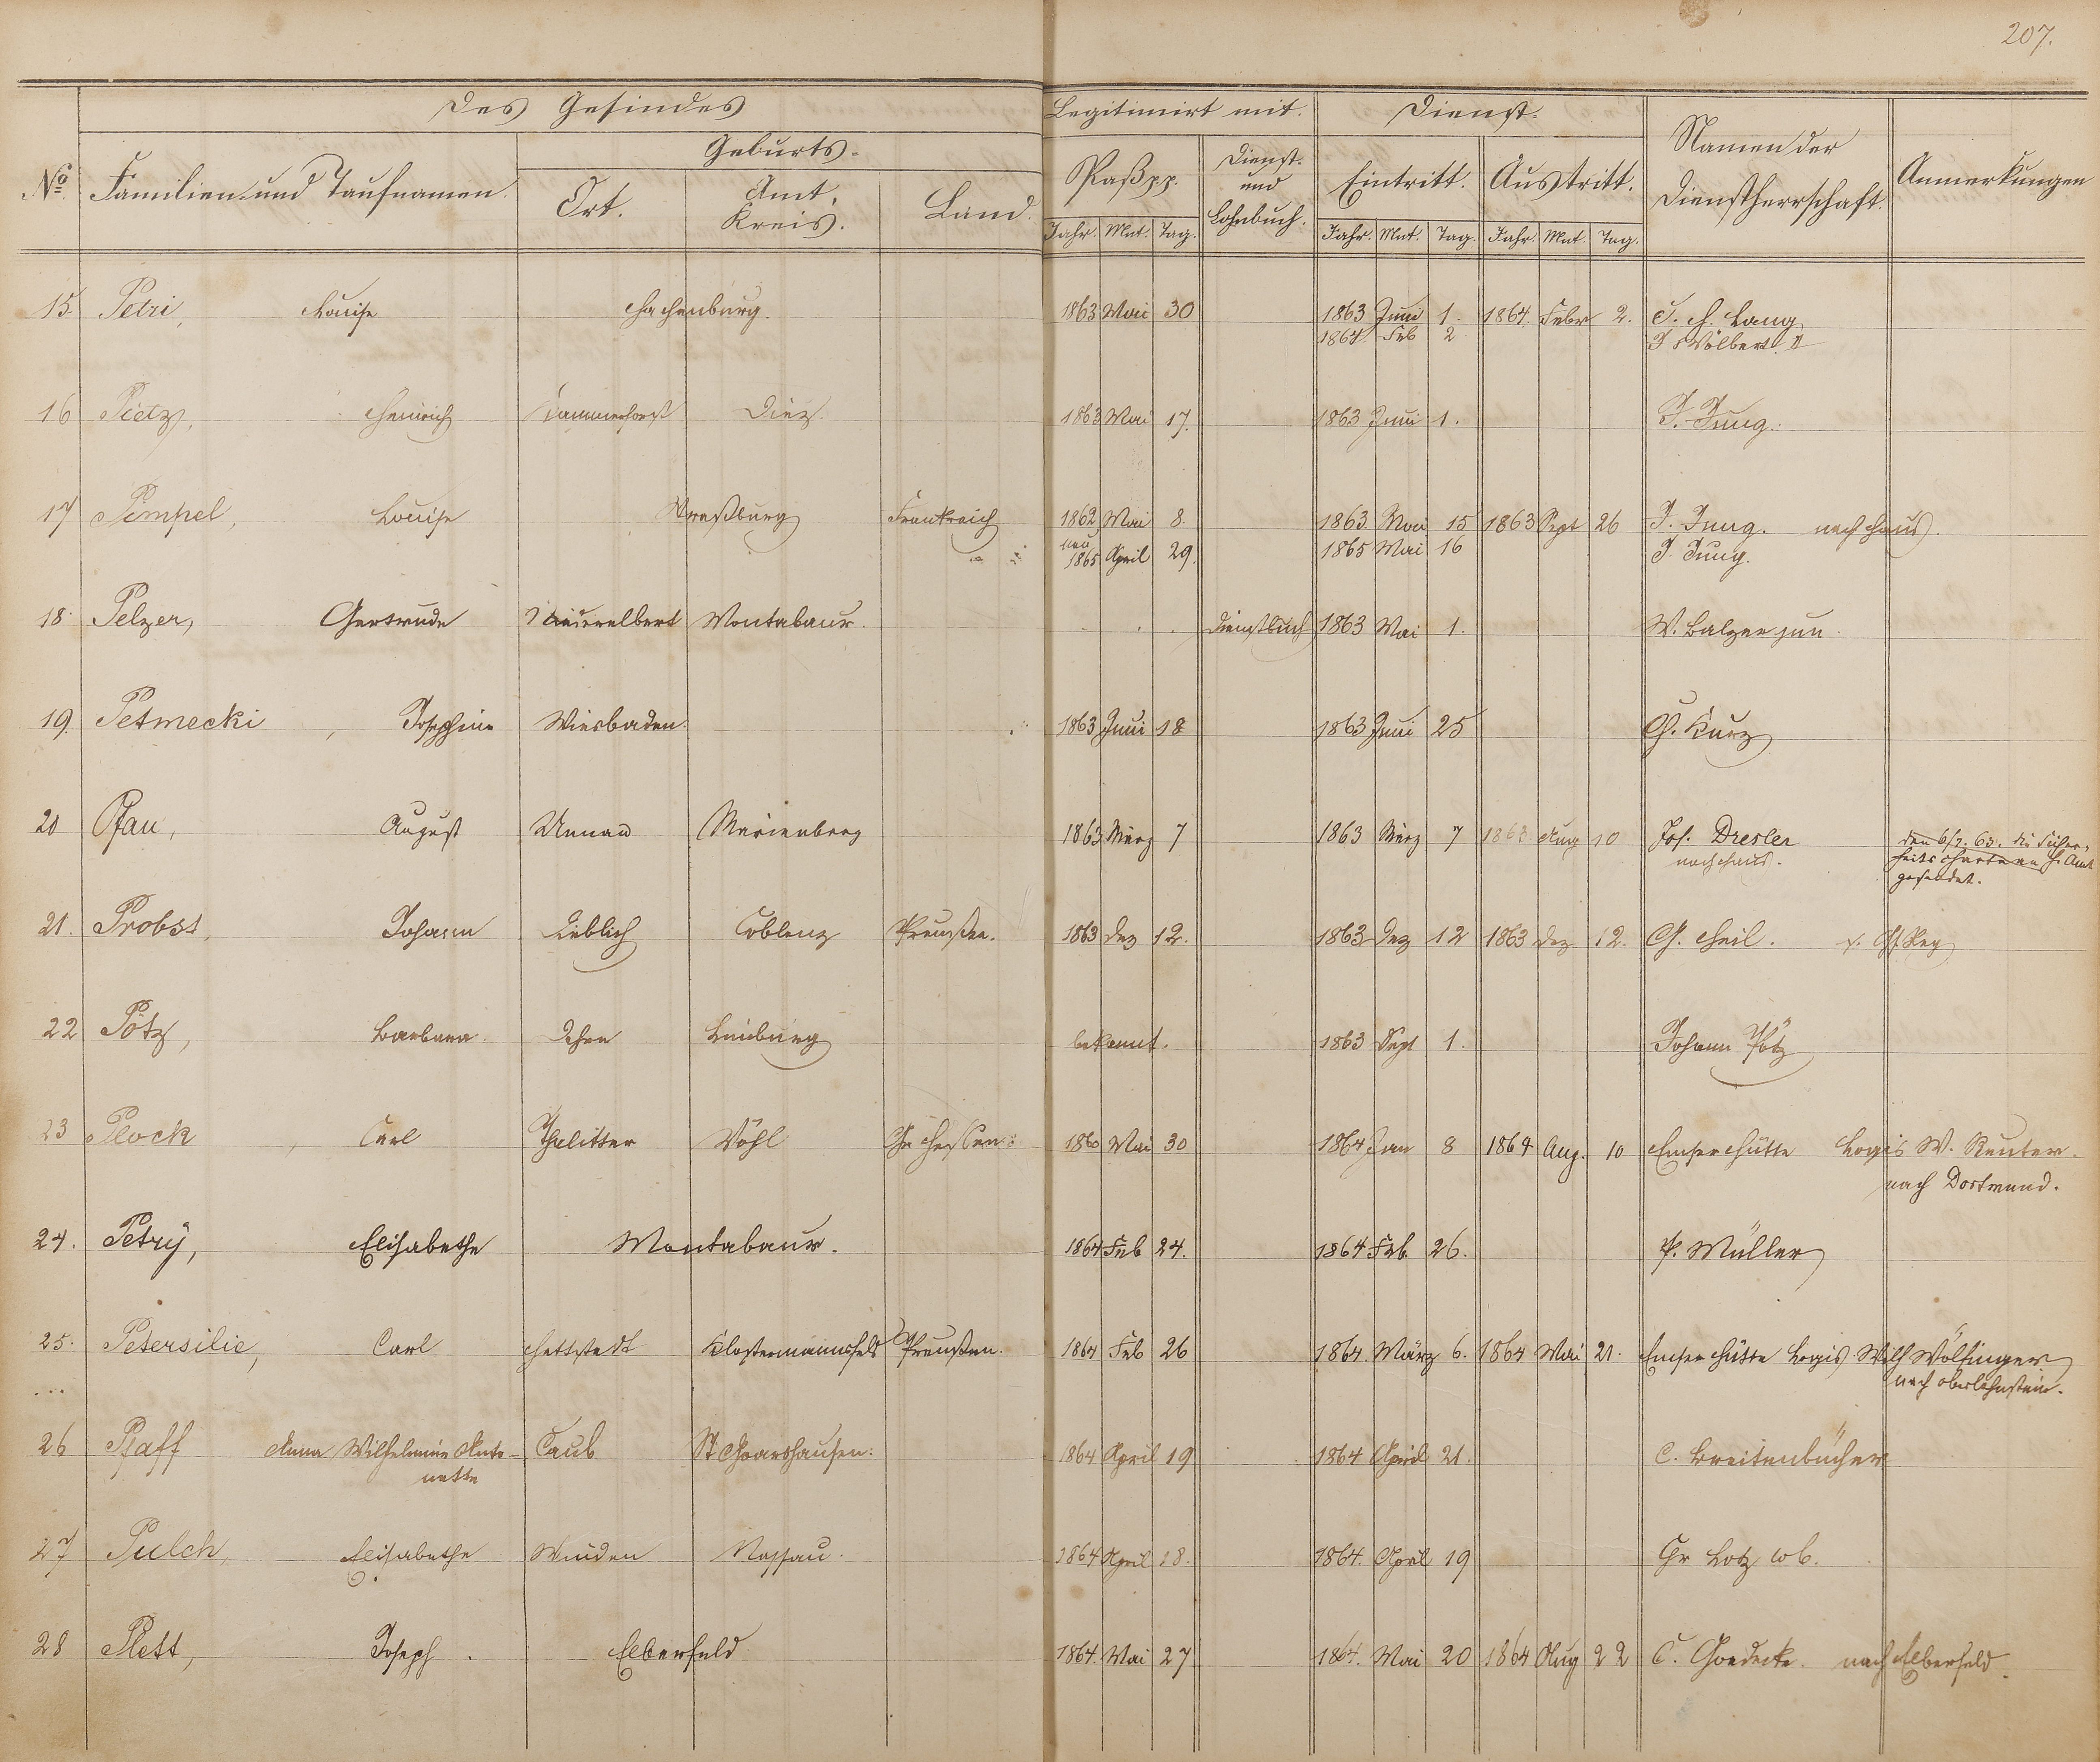 207.
Des Gesindes Legitimirt mit. Dienst.
No. Familien- und Taufnamen. Geburts- Paß pp. Dienst- und Lohnbuch. Eintritt. Austritt. Namen der Dienstherrschaft. Anmerkungen
Ort. Amt, Kreis. Land.
Jahr. Mnt. Tag. Jahr. Mnt. Tag. Jahr. Mnt. Tag.
15. Petri, Louise Hachenburg. 1863 Mai 30 1863 Juni 1. 1864. Febr 2. C. H. Lang,
1864. Feb 2 Wölbert II
16 Pietz, Heinrich Diez. 1863 Mai 17. 1863 Juni 1. J. Jung.
17 Pempel, Louise Straßburg Frankreich 1862 Mai 8. 1863 Mai 15 1863 Sept 26 J. Jung. nach Haus.
neu 1865 April 29. 1865 Mai 16 J. Jung.
18. Pelzer, Gertrude Niederelbert Montabaur. Dienstbuch 1863 Mai 1. W. Balzer jun.
19. Petmecki, Josephine Wiesbaden. 1863 Juni 18 1863 Juni 25 Ch. Kurz
20 Pfau, August Unnau Marienberg 1863 März 7 1863 März 7 1863 Aug 10 Jos. Dresler den 6/7. 63. die Sicher-
nach Haus. heits Charte an H. Amt
gesendet.
21. Probst, Johann Lieblich Coblenz Preußen. 1863 Dez 12. 1863 Dez 12 1863 Dez 12. Ch. Heil.
22 Pötz, Barbara Dehrn Limburg bekannt. 1863 Sept 1. Johann Pötz
23 Plock, Carl Thalitter Vöhl Gr. Hessen. 1860 Mai 30 1864 Jan 8 1864 Aug. 10 Emser Hütte Logis W. Reuter.
nach Dortmund.
24. Petry, Elisabethe Montabaur. 1864 Feb 24. 1864 Feb 26. P. Müller
25. Petersilie, Carl Hettstedt Klostermannsfeld Preußen. 1864 Feb 26 1864. März 6. 1864 Mai 21. Emser Hütte Logis Wilh Wölfinger
nach Oberlahnstein.
26 Pfaff Anna Wilhelmine Anto- Caub St Goarshausen. 1864 April 19 1864 April 21. C. Breitenbücher
nette
27 Pulch, Elisabethe Winden Nassau. 1864 April 18. 1864. April 19 Chr Lotz wb.
28 Plett, Joseph. Elberfeld 1864. Mai 27 1864. Mai 20 1864 Aug 22 C. Goedecke. nach Elberfeld.